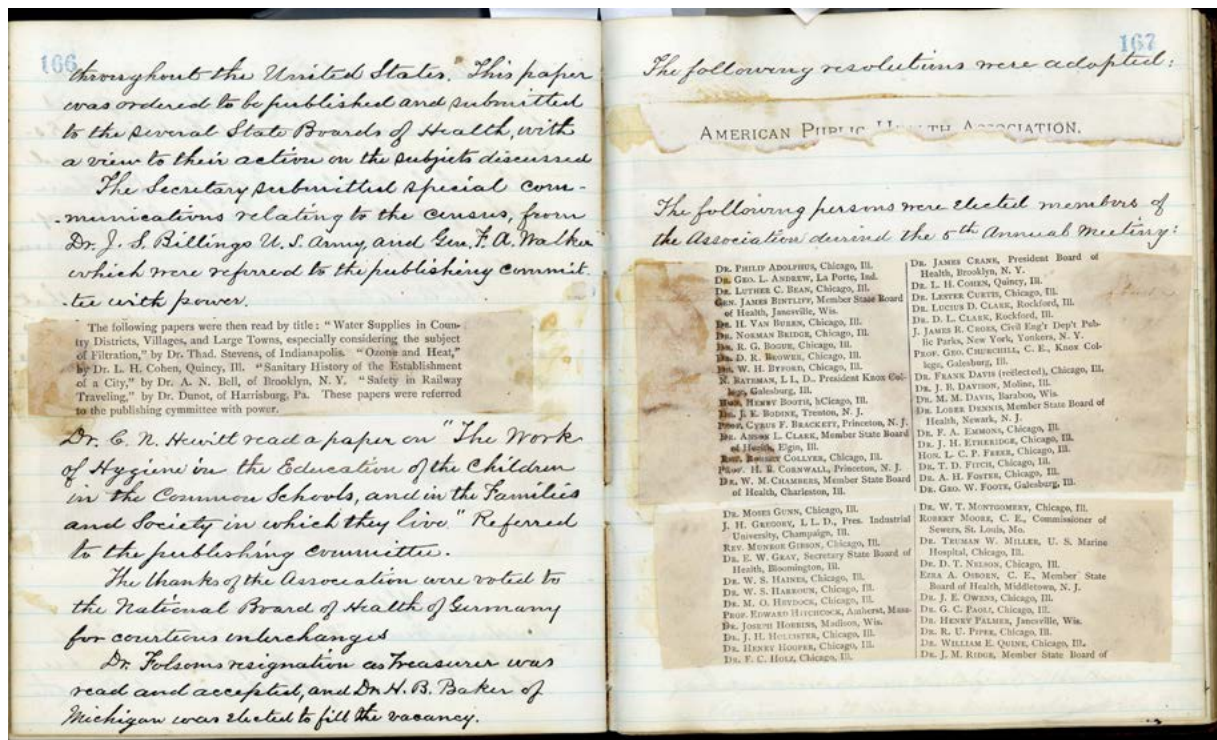 166
throughout the United States. This paper
was ordered to be published and submitted
to the several State Boards of Health, with
a view to their action on the subjects discussed
The Secretary submitted special com-
-munications relating to the census, from
Dr. J. S. Billings U. S. Army, and Gen. F. A. Walker
which were referred to the publishing commit-
-tee with power.
The following papers were then read by title: "Water Supplies in Coun-
try Districts, Villages, and Large Towns, especially considering the subject
of Filtration," by Dr. Thad. Stevens, of Indianapolis. "Ozone and Heat,"
by Dr. L. H. Cohen, Quincy, Ill. "Sanitary History of the Establishment
of a City," by Dr. A. N. Bell, of Brooklyn, N. Y. "Safety in Railway
Traveling," by Dr. Dunot, of Harrisburg, Pa. These papers were referred
to the publishing cymmittee with power.
Dr. C. N. Hewitt read a paper on "The Work
of Hygiene in the Education of the Children
in the Common Schools, and in the Families
and Society in which they live" Referred
to the publishing committee.
The thanks of the Association were voted to
the National Board of Health of Germany
for courtious interchanges
Dr. Folsoms resignation as Treasurer was
read and accepted, and Dr. H. B. Baker of
Michigan was elected to fill the vacancy.
167
The following resolutions were adopted:
AMERICAN PUBLIC HEALTH ASSOCIATION.
The following persons were elected members of
the Association durind the 5th Annual Meeting:
DR. PHILIP ADOLPHUS, Chicago, Ill.
DR. GEO. L. ANDREW, La Porte, Ind.
DR. LUTHER C. BEAN, Chicago, Ill.
GEN. JAMES BINTLIFF, Member State Board
of Health, Janesville, Wis.
DR. H. VAN BUREN, Chicago, Ill.
DR. NORMAN BRIDGE, Chicago, Ill.
DR. R. G. BOGUE, Chicago, Ill.
DR. D. R. BROWER, Chicago, Ill.
DR. W. H. BYFORD, Chicago, Ill.
N. BATEMAN, L L, D., President Knox Col-
lege, Galesburg, Ill.
HON. HENRY BOOTH, hCicago, Ill.
DR. J. E. BODINE, Trenton, N. J.
PROF. CYRUS F. BRACKETT, Princeton, N. J.
DR. ANSON L. CLARK, Member State Board
of Health, Elgin, Ill.
REV. ROBERT COLLYER, Chicago, Ill.
PROF. H. B. CORNWALL, Princeton, N. J.
DR. W. M. CHAMBERS, Member State Board
of Health, Charleston, Ill.
DR. JAMES CRANE, President Board of
Health, Brooklyn, N. Y.
DR. L. H. COHEN, Quincy, Ill.
DR. LESTER CURTIS, Chicago, Ill.
DR. LUCIUS D. CLARK, Rockford, Ill.
DR. D. L. CLARK, Rockford, Ill.
J. JAMES R. CROES, Civil Eng'r Dep't Pub-
lic Parks, New York, Yonkers, N. Y.
PROF. GEO. CHURCHILL, C. E., Knox Col-
lege, Galesburg, Ill.
DR. FRANK DAVIS (reëlected), Chicago, Ill.
DR. J. B. DAVISON, Moline, Ill.
DR. M. M. DAVIS, Baraboo, Wis.
DR. LOBER DENNIS, Member State Board of
Health, Newark, N. J.
DR. F. A. EMMONS, Chicago, Ill.
DR. J. H. ETHERIDGE, Chicago, Ill.
HON. L. C. P. FREER, Chicago, Ill.
DR. T. D. FITCH, Chicago, Ill.
DR. A. H. FOSTER, Chicago, Ill.
DR. GEO. W. FOOTE, Galesburg, Ill.
DR. MOSES GUNN, Chicago, Ill.
J. H. GREGORY, L L D., Pres. Industrial
University, Champaign, Ill.
REV. MUNROE GIBSON, Chicago, Ill.
DR. E. W. GRAY, Secretary State Board of
Health, Bloomington, Ill.
DR. W. S. HAINES, Chicago, Ill.
DR. W. S. HARROUN, Chicago, Ill.
DR. M. O. HEYDOCK, Chicago, Ill.
PROF. EDWARD HITCHCOCK, Amherst, Mass.
DR. JOSEPH HOBBINS, Madison, Wis.
DR. J. H. HOLLISTER, Chicago, Ill.
DR. HENRY HOOPER, Chicago, Ill.
DR. F. C. HOLZ, Chicago, Ill.
DR. W. T. MONTGOMERY, Chicago, Ill.
ROBERT MOORE, C. E., Commissioner of
Sewers, St. Louis, Mo.
DR. TRUMAN W. MILLER, U. S. Marine
Hospital, Chicago, Ill.
DR. D. T. NELSON, Chicago, Ill.
EZRA A. OSBORN, C. E., Member State
Board of Health, Middletown, N. J.
DR. J. E. OWENS, Chicago, Ill.
DR. G. C. PAOLI, Chicago, Ill.
DR. HENRY PALMER, Janesville, Wis.
DR. R. U. PIPER, Chicago, Ill.
DR. WILLIAM E. QUINE, Chicago, Ill.
DR. J. M. RIDGE, Member State Board of